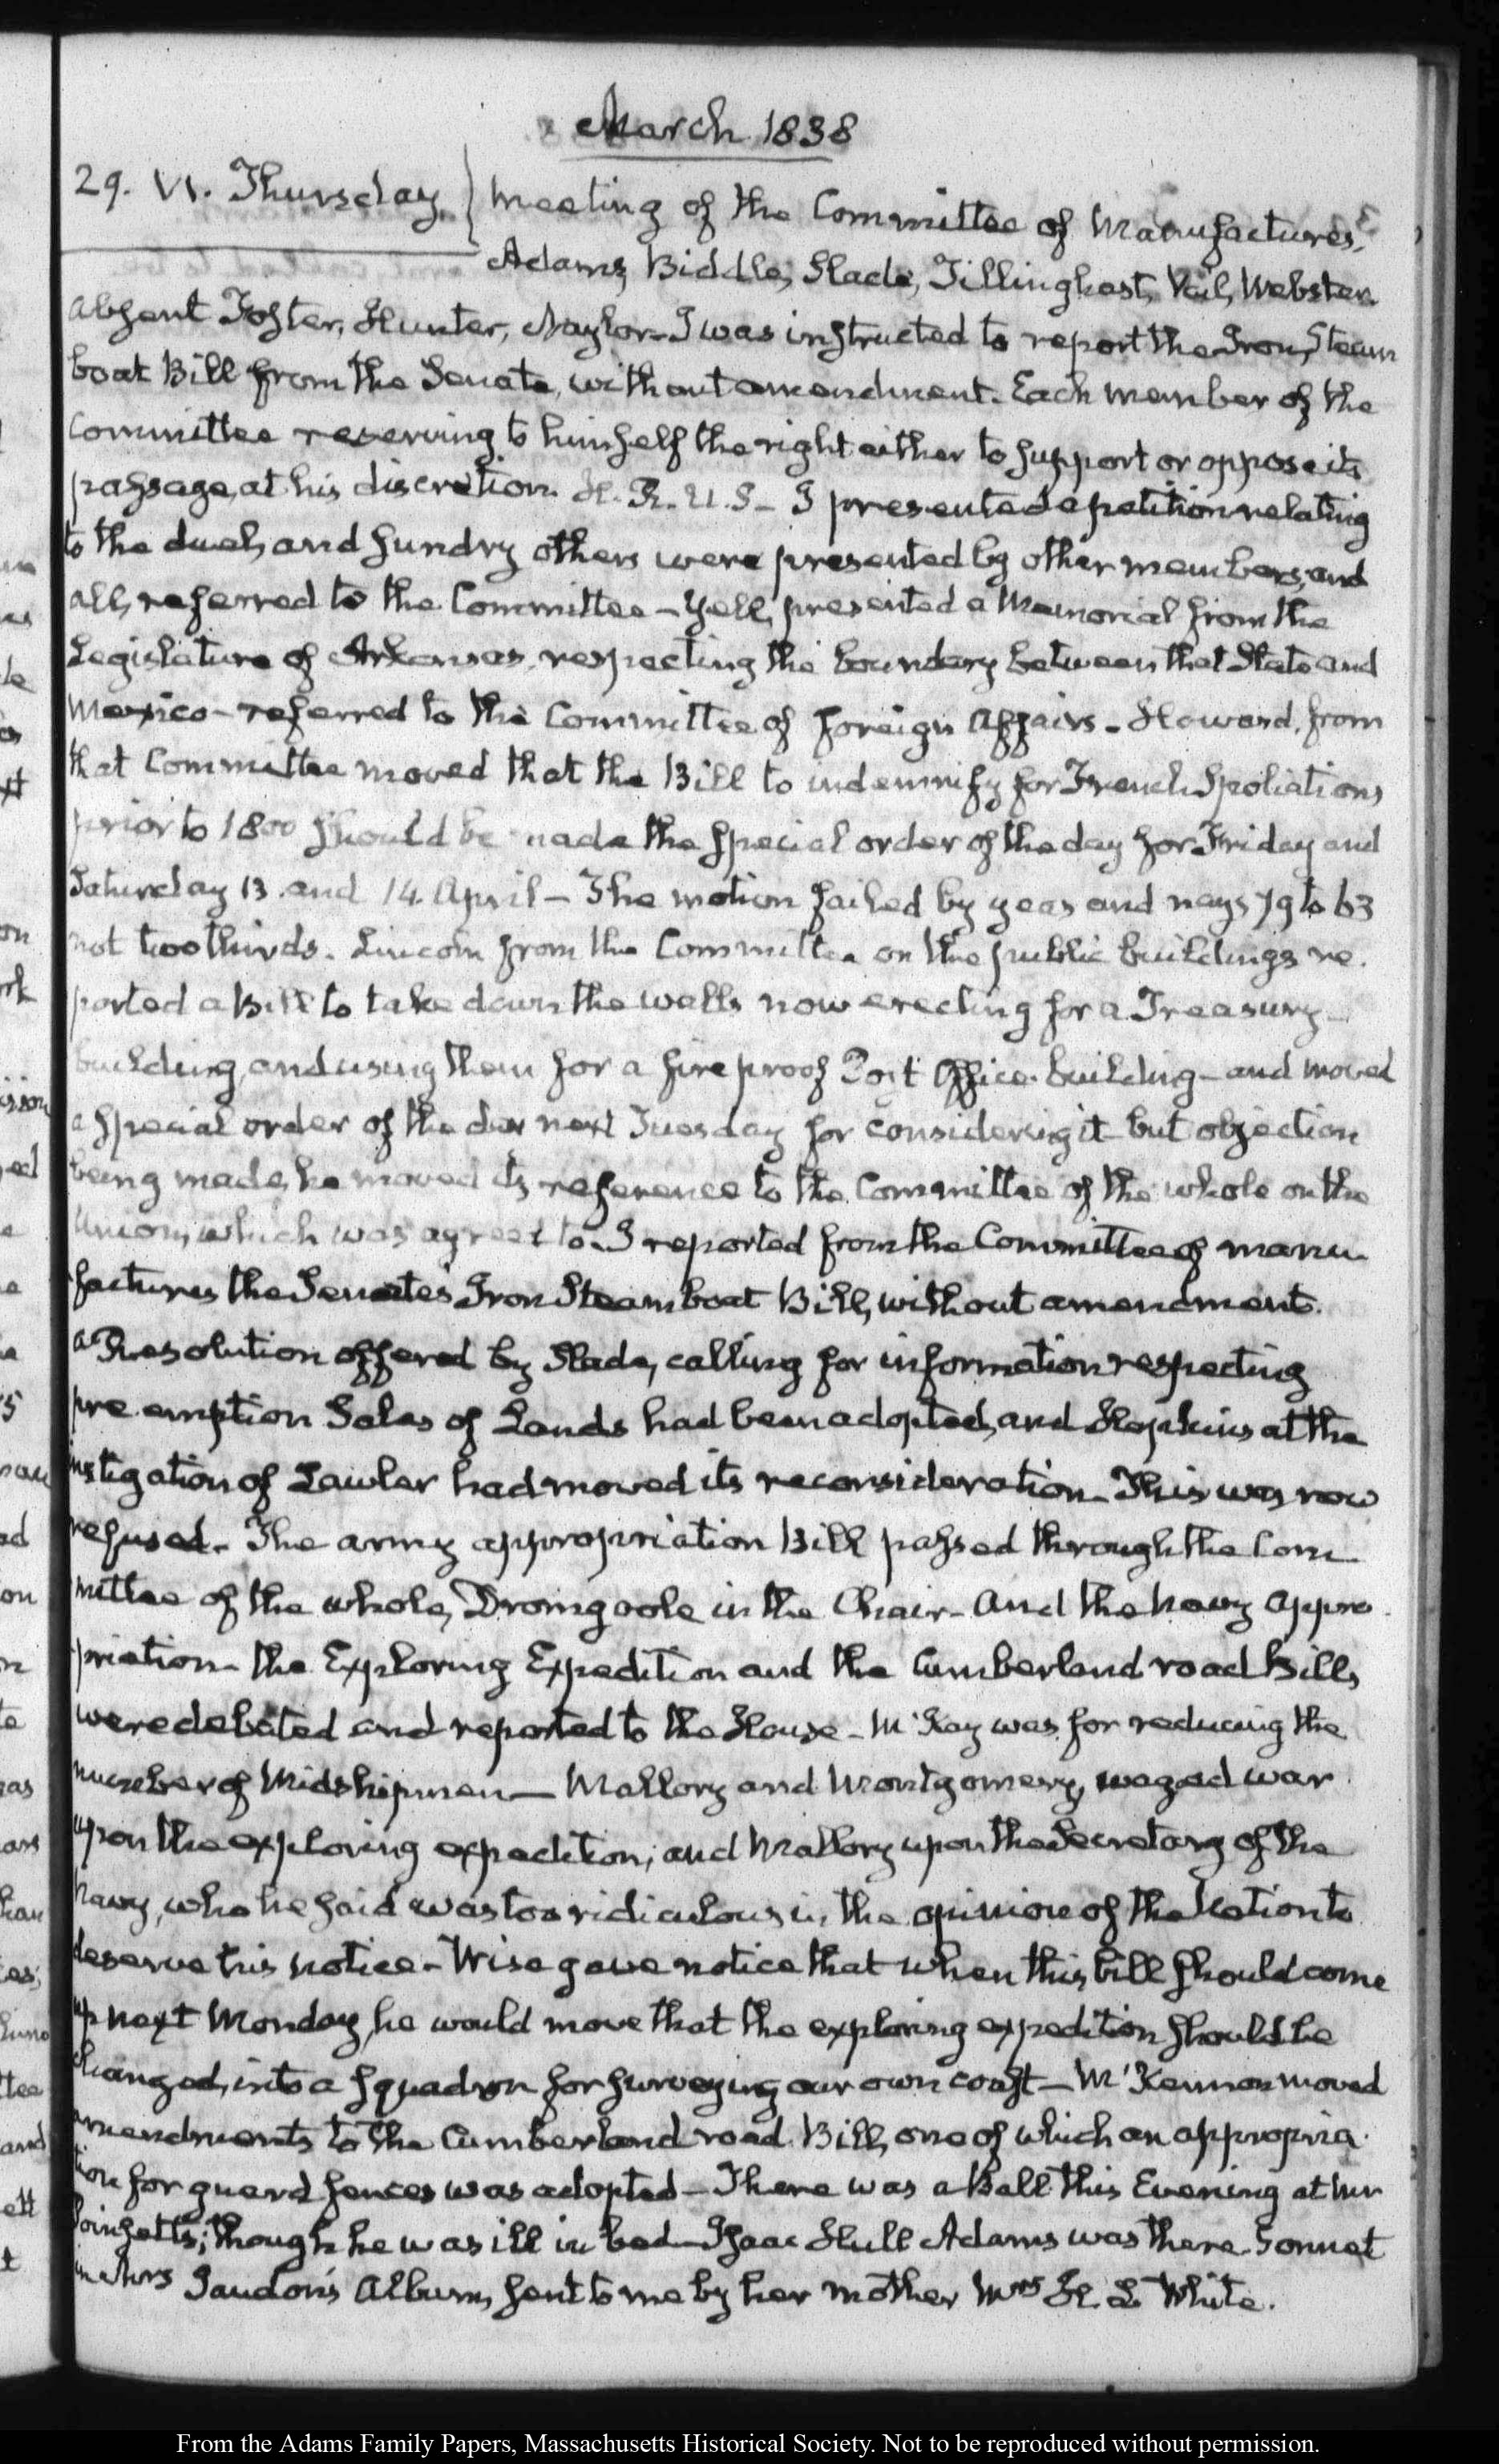 March 1838
29. VI. Thursday } Meeting of the Committee of Manufactures,
Adams, Biddle, Slade, Tillinghast, Vail, Webster.
absent Foster, Hunter, Naylor. I was instructed to report the Iron, Steam
boat Bill from the Senate, without amendment. Each member of the
Committee reserving to himself the right either to support or oppose its
passage, at his discretion. H. R. U. S— I presented a petition relating
to the duel, and sundry others were presented by other members, and
all, referred to the Committee— Yell, presented a Memorial from the
Legislature of Arkansas, respecting the boundary between that State and
Mexico— referred to the Committee of foreign Affairs— Howard, from
that Committee moved that the Bill to indemnify for French Spoliations
prior to 1800 should be made the special order of the day for Friday and
Saturday 13. and 14. April— The motion failed by yeas and nays 79 to 63
not two thirds. Lincoln from the Committee on the public buildings re-
ported a Bill to take down the walls now erecting for a Treasury—
building, and using them for a fire proof Post Office building— and moved
a special order of the day next Tuesday for considering it but objection
being made, he moved its reference to the Committee of the whole on the
Union, which was agreed to. I reported from the Committee of manu-
factures the Senate's Iron Steam boat Bill, without amendment.
a Resolution offered by Slade, calling for information respecting
pre emption Sales of Lands had been adopted, and Hopkins at the
instigation of Lawler had moved its reconsideration. This was now
refused. The army appropriation Bill passed through the Com
mittee of the whole, Dromgoole in the Chair— And the navy appro
priation— the Exploring Expedition and the Cumberland road Bills
were debated and reported to the House— McKay was for reducing the
number of Midshipmen— Mallory and Montgomery, waged war
upon the exploring expedition; and Mallory upon the Secretary of the
navy, who he said was too ridiculous in the opinion of the Nation to
deserve his notice— Wise gave notice that when this bill should come
up next Monday, he would move that the exploring expedition should be
changed, into a squadron for surveying our own coast— McKennan moved
amendments to the Cumberland road Bill, one of which an appropria-
tion for guard fences was adopted— There was a Ball this Evening at Mr
Poinsett's; though he was ill in bed— Isaac Hull Adams was there. Sonnet
in Mrs Jaudon's Album, sent to me by her mother Mrs H. L. White.
From the Adams Family Papers, Massachusetts Historical Society. Not to be reproduced without permission.